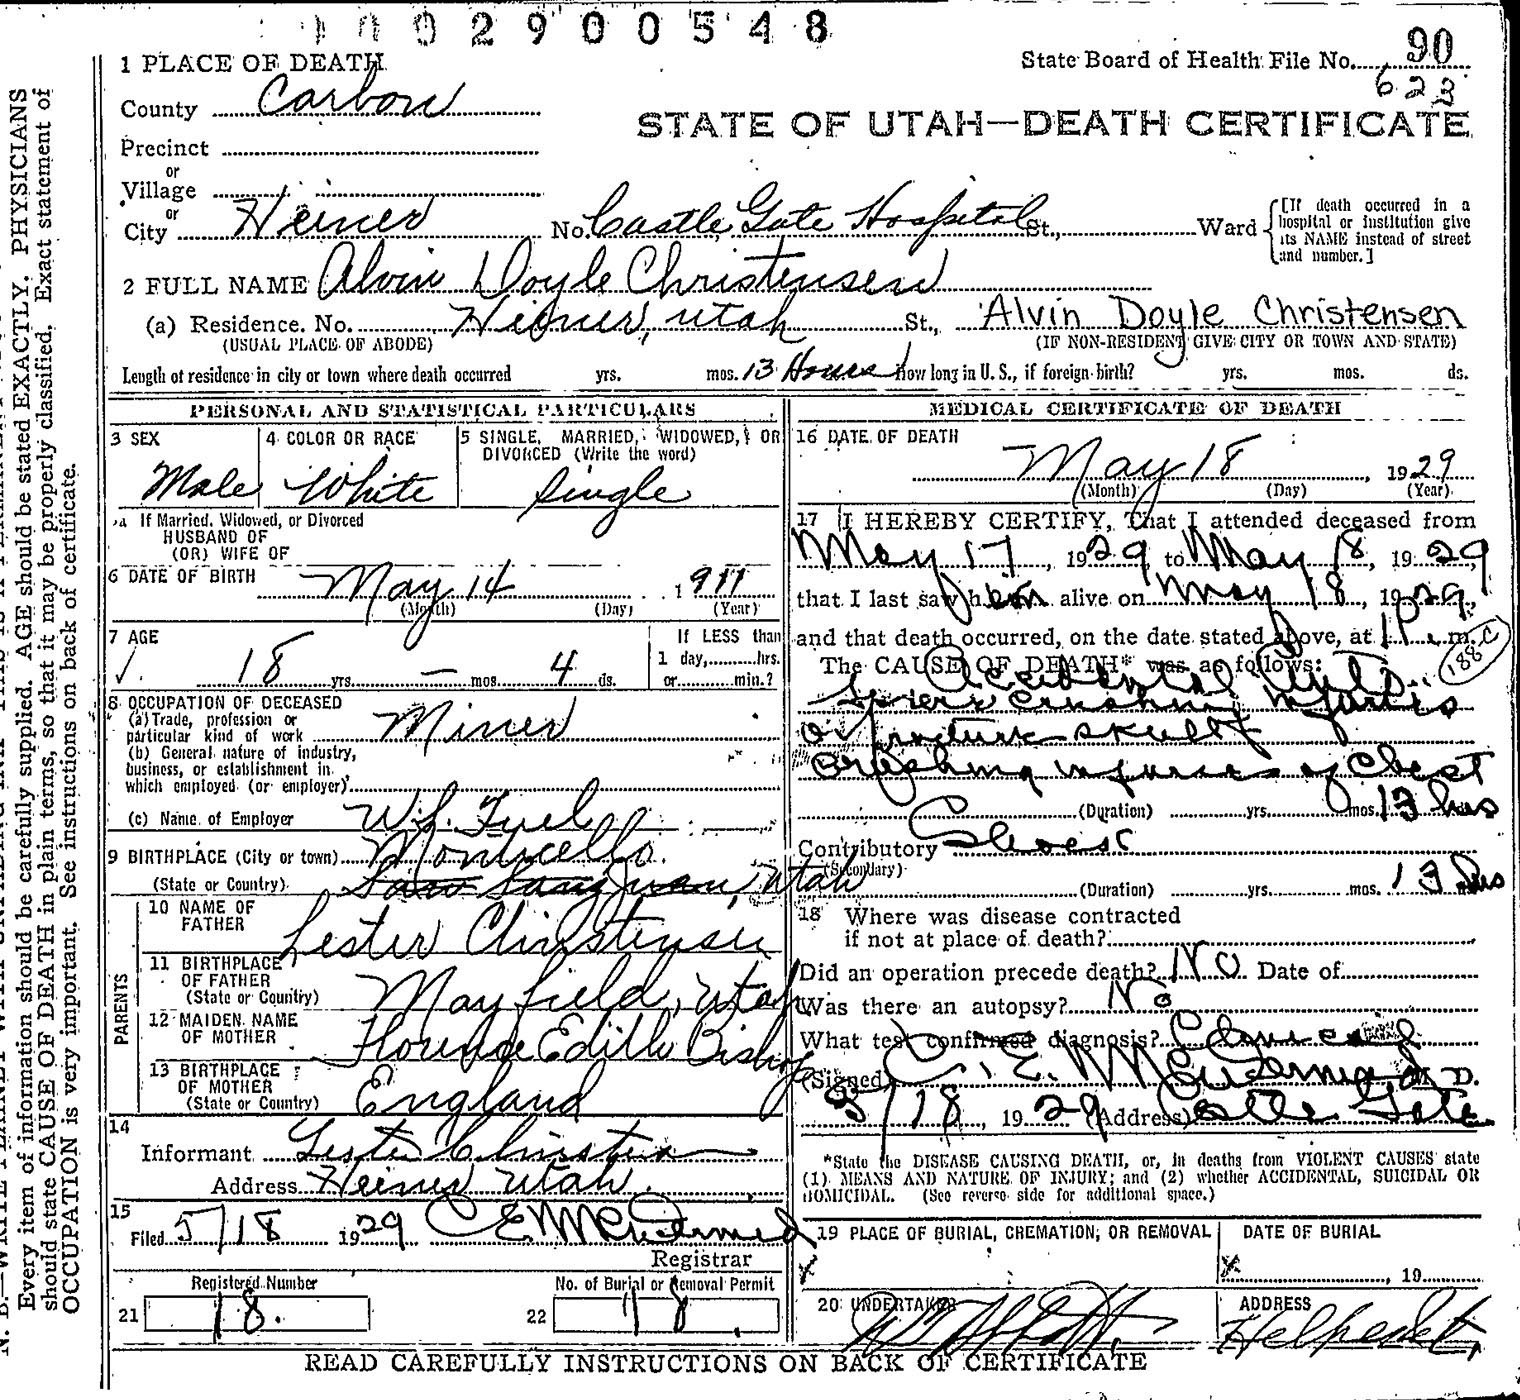 0 0 2 9 0 0 5 4 8
1 PLACE OF DEATH
State Board of Health File No. 90
623
County Carbon
STATE OF UTAH—DEATH CERTIFICATE
Precinct
or
Village
or
City Heiner No. Castle Gate Hospital St., Ward
[If death occurred in a hospital or institution give its NAME instead of street and number.]
2 FULL NAME Alvin Doyle Christensen
(a) Residence. No. Heiner, Utah St., Alvin Doyle Christensen
(USUAL PLACE OF ABODE) (IF NON-RESIDENT GIVE CITY OR TOWN AND STATE)
Length of residence in city or town where death occurred yrs. mos. 13 Hours How long in U. S., if foreign birth? yrs. mos. ds.
PERSONAL AND STATISTICAL PARTICULARS
3 SEX
Male
4 COLOR OR RACE
White
5 SINGLE, MARRIED, WIDOWED, OR
DIVORCED (Write the word)
Single
a If Married, Widowed, or Divorced
HUSBAND OF
(OR) WIFE OF
6 DATE OF BIRTH May 14 1911
(Month) (Day) (Year)
7 AGE
18 yrs. — mos. 4 ds.
If LESS than
1 day, hrs.
or min.?
8 OCCUPATION OF DECEASED
(a) Trade, profession or
particular kind of work Miner
(b) General nature of industry,
business, or establishment in
which employed (or employer)
(c) Name of Employer Fuel
9 BIRTHPLACE (City or town) Monticello
(State or Country) San Juan, Utah
PARENTS
10 NAME OF
FATHER Lester Christensen
11 BIRTHPLACE
OF FATHER
(State or Country) Mayfield, Utah
12 MAIDEN NAME
OF MOTHER Florence Edith Bishop
13 BIRTHPLACE
OF MOTHER
(State or Country) England
14
Informant Lester Christensen
Address Heiner Utah
15
Filed 5/18 1929 C E McDermid
Registrar
Registered Number
21 18.
No. of Burial or Removal Permit
22 18
MEDICAL CERTIFICATE OF DEATH
16 DATE OF DEATH
May 18, 1929
(Month) (Day) (Year)
17 I HEREBY CERTIFY, That I attended deceased from
May 17, 1929, to May 18, 1929,
that I last saw him alive on May 18, 1929,
and that death occurred, on the date stated above, at 1 P. m.
188c
The CAUSE OF DEATH* was as follows:
Accidental Auto
crushing injuries
fracture skull
Crushing injuries of Chest
(Duration) yrs. mos. 13 hrs
Contributory
(Secondary)
(Duration) yrs. mos. 13 hrs
18 Where was disease contracted
if not at place of death?
Did an operation precede death? No Date of
Was there an autopsy? No
What test confirmed diagnosis? Clinical
(Signed) C. E. McDermid M. D.
5/18, 1929 (Address) Castle Gate
*State the DISEASE CAUSING DEATH, or, in deaths from VIOLENT CAUSES state
(1) MEANS AND NATURE OF INJURY; and (2) whether ACCIDENTAL, SUICIDAL OR
HOMICIDAL. (See reverse side for additional space.)
19 PLACE OF BURIAL, CREMATION, OR REMOVAL
x
DATE OF BURIAL
x , 19
20 UNDERTAKER
ADDRESS
READ CAREFULLY INSTRUCTIONS ON BACK OF CERTIFICATE
Every item of information should be carefully supplied. AGE should be stated EXACTLY. PHYSICIANS
should state CAUSE OF DEATH in plain terms, so that it may be properly classified. Exact statement of
OCCUPATION is very important. See instructions on back of certificate.